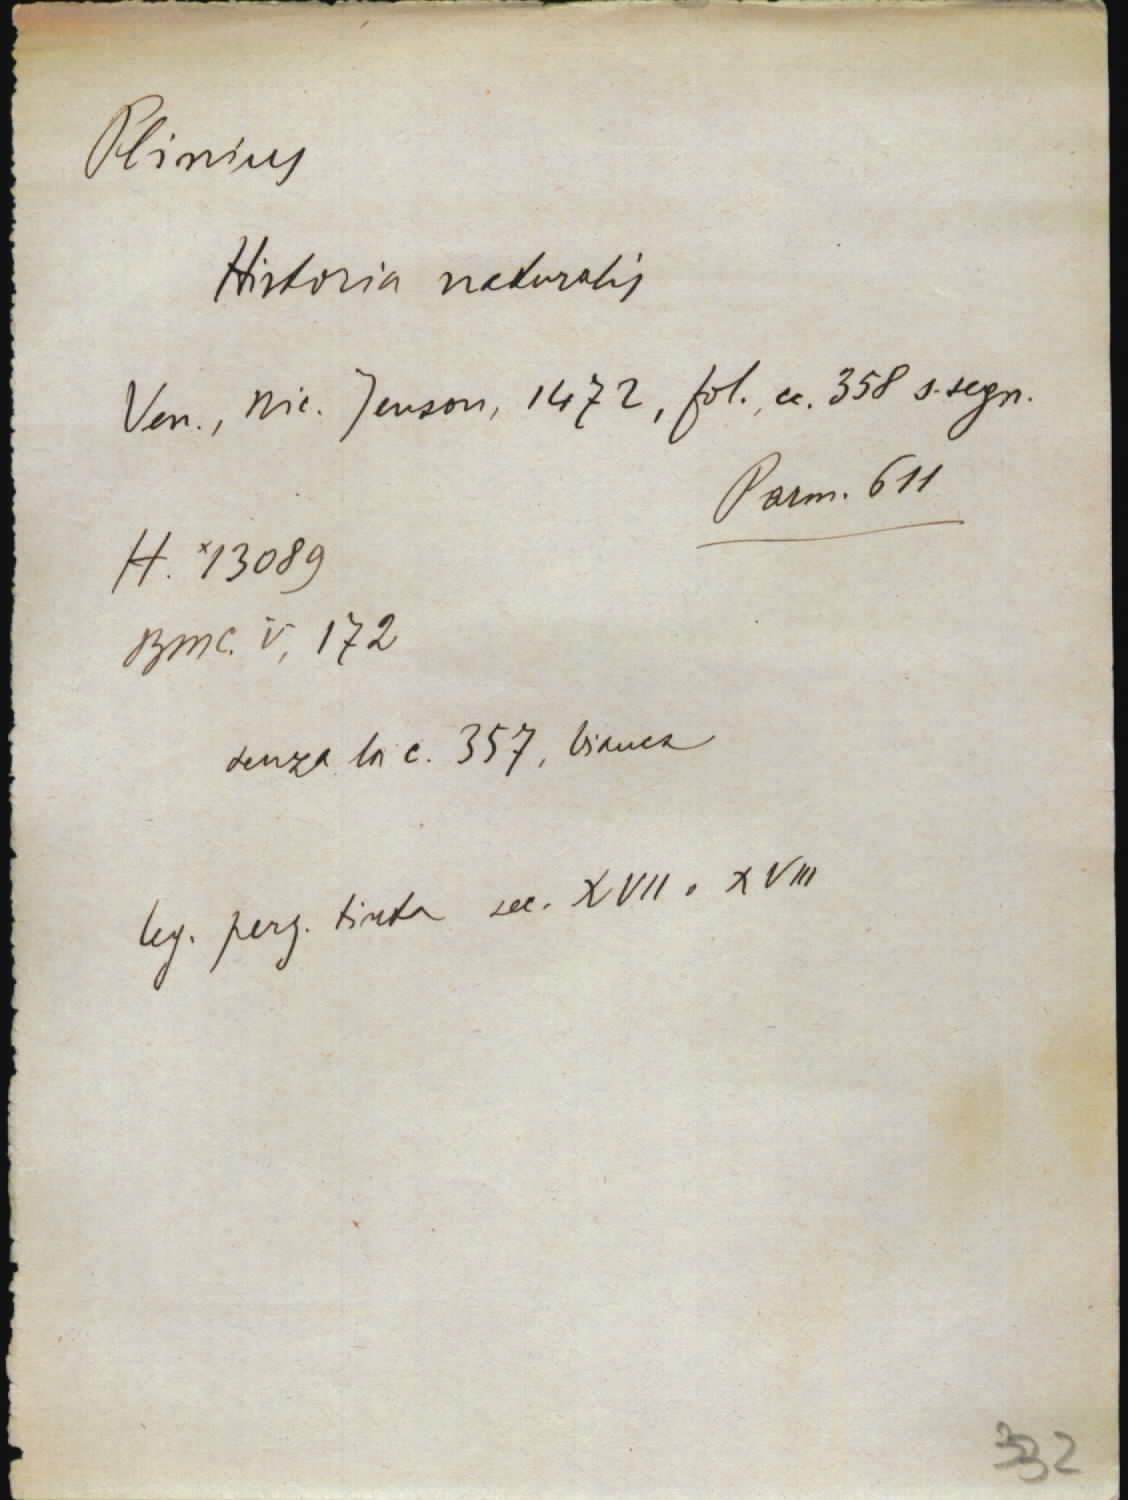 Plinius
Historia naturalis
Ven., Nic. Jenson, 1472, fol., cc. 358 s. segn.
Parm. 611
H. *13089
BMC. V, 172
senza la c. 357, bianca
leg. perg. tinta sec. XVII o XVIII
332